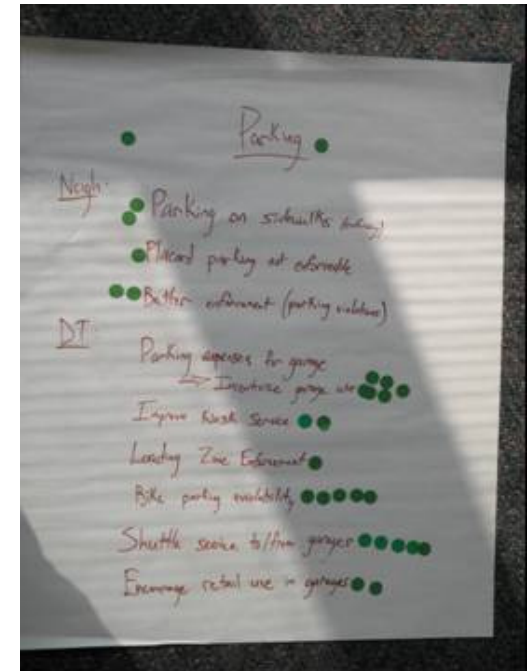 Parking
Neigh:
Parking on sidewalks
Placard parking not enforceable
Better enforcement (parking violations)
DT
Parking expenses for garage
Incentivize garage use
Improve Kiosk Service
Loading Zone Enforcement
Bike parking availability
Shuttle service to/from garages
Encourage retail use in garages